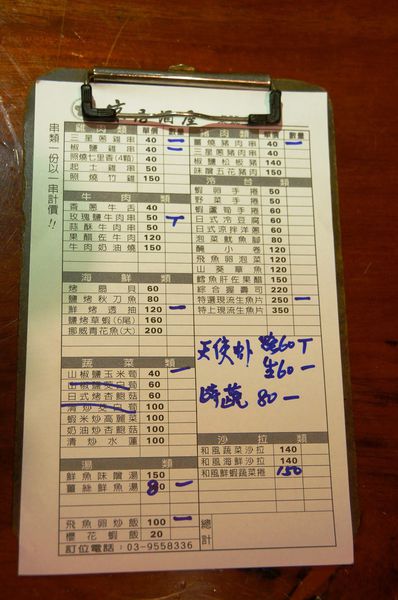 京居酒屋
串類一份以一串計價!!
雞肉類 單價 數量
三星蔥雞串 40 一
椒鹽雞串 40 二
照燒七里香(4顆) 40
起士雞串 50
照燒竹雞 150
牛肉類
香蔥牛舌 40
玫瑰鹽牛肉串 50 T
蒜酥牛肉串 50
果醋佐牛肉 120
牛肉奶油燒 150
海鮮類
烤扇貝 60
鹽烤秋刀魚 80
鮮烤透抽 120 一
鹽烤草蝦(6尾) 160
挪威青花魚(大) 200
蔬菜類
山椒鹽玉米筍 40 一
山椒鹽茭白筍 60
日式烤杏鮑菇 60
清炒茭白筍 100
蝦米炒高麗菜 100
奶油炒杏鮑菇 100
清炒水蓮 100
湯類
鮮魚味噌湯 150
薑絲鮮魚湯 80 一
飛魚卵炒飯 100 一
櫻花蝦飯 20
訂位電話:03-9558336
豬肉類 單價 數量
薑燒豬肉串 40 一
三星蔥豬肉串 40
椒鹽松板豬 140
味噌五花豬肉 150
冷台類
蝦卵手捲 50
野菜手捲 50
蝦蘆筍手捲 60
日式冷豆腐 60
日式涼拌洋蔥 60
泡菜魷魚腳 80
醃小卷 120
飛魚卵泡菜 120
山葵章魚 120
鱈魚肝佐果醋 150
綜合握壽司 220
特選現流生魚片 250 一
特上現流生魚片 350
天使蝦 烤60 T
生60 一
時蔬 80 一
沙拉類
和風蔬菜沙拉 140
和風海鮮沙拉 140
和風鮮蝦蔬菜捲 150
總計